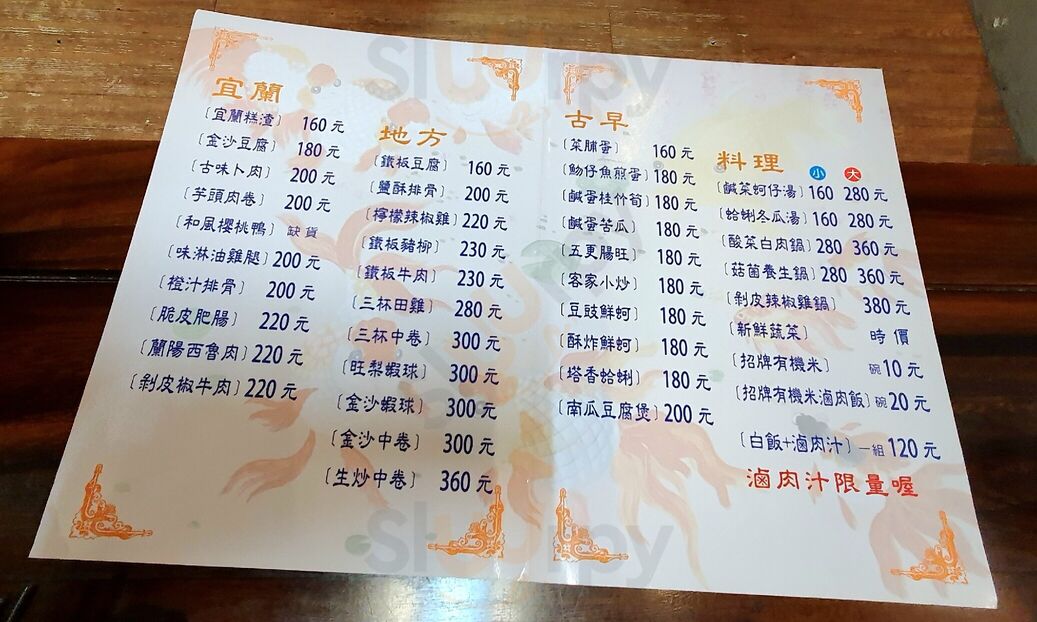 宜蘭
〔宜蘭糕渣〕 160元
〔金沙豆腐〕 180元
〔古味卜肉〕 200元
〔芋頭肉卷〕 200元
〔和風櫻桃鴨〕 缺貨
〔味淋油雞腿〕 200元
〔橙汁排骨〕 200元
〔脆皮肥腸〕 220元
〔蘭陽西魯肉〕 220元
〔剝皮椒牛肉〕 220元
地方
〔鐵板豆腐〕 160元
〔鹽酥排骨〕 200元
〔檸檬辣椒雞〕 220元
〔鐵板豬柳〕 230元
〔鐵板牛肉〕 230元
〔三杯田雞〕 280元
〔三杯中卷〕 300元
〔旺梨蝦球〕 300元
〔金沙蝦球〕 300元
〔金沙中卷〕 300元
〔生炒中卷〕 360元
古早
〔菜脯蛋〕 160元
〔魩仔魚煎蛋〕 180元
〔鹹蛋桂竹筍〕 180元
〔鹹蛋苦瓜〕 180元
〔五更腸旺〕 180元
〔客家小炒〕 180元
〔豆豉鮮蚵〕 180元
〔酥炸鮮蚵〕 180元
〔塔香蛤蜊〕 180元
〔南瓜豆腐煲〕 200元
料理 小 大
〔鹹菜蚵仔湯〕 160 280元
〔蛤蜊冬瓜湯〕 160 280元
〔酸菜白肉鍋〕 280 360元
〔菇菌養生鍋〕 280 360元
〔剝皮辣椒雞鍋〕 380元
〔新鮮蔬菜〕 時價
〔招牌有機米〕 碗10元
〔招牌有機米滷肉飯〕 碗20元
〔白飯+滷肉汁〕 一組120元
滷肉汁限量喔
Slurpy
Slurpy